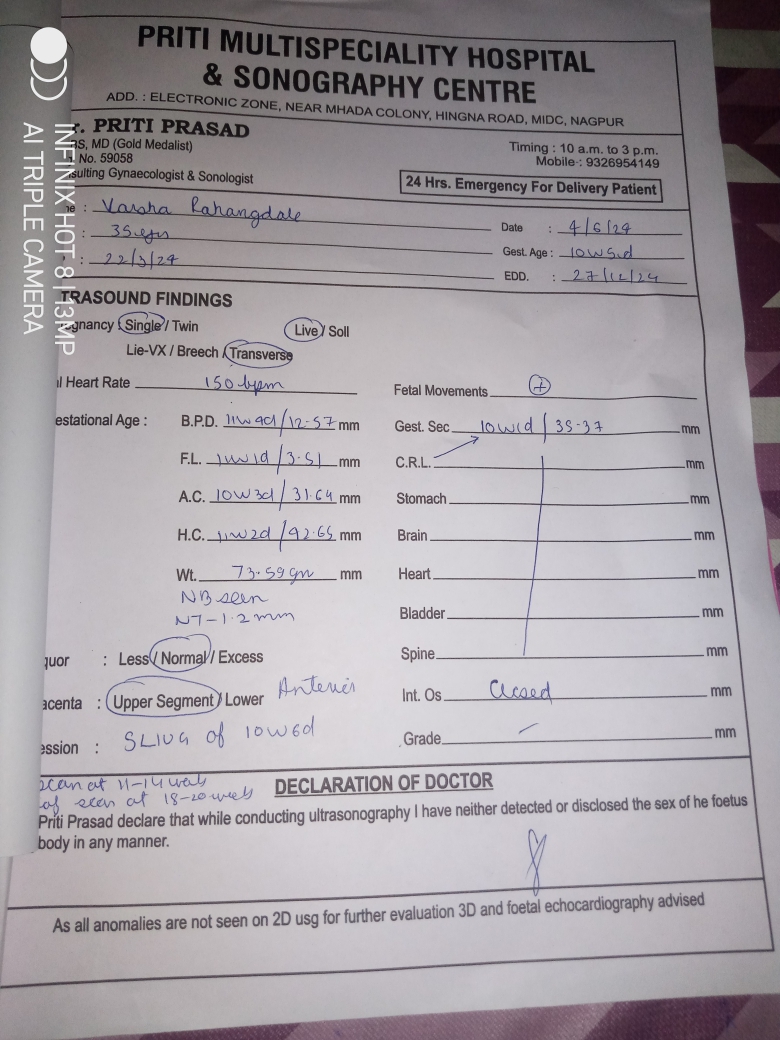 INFINIX HOT 8 | 13MP
AI TRIPLE CAMERA
PRITI MULTISPECIALITY HOSPITAL
& SONOGRAPHY CENTRE
ADD. : ELECTRONIC ZONE, NEAR MHADA COLONY, HINGNA ROAD, MIDC, NAGPUR
r. PRITI PRASAD
BS, MD (Gold Medalist)
No. 59058
sulting Gynaecologist & Sonologist
Timing : 10 a.m. to 3 p.m.
Mobile : 9326954149
24 Hrs. Emergency For Delivery Patient
: Varsha Rahangdale
: 35 yrs
: 22/3/24
Date : 4/6/24
Gest. Age : 10w5d
EDD. : 27/12/24
TRASOUND FINDINGS
egnancy Single / Twin Live / Soll
Lie-VX / Breech / Transverse
l Heart Rate 150 bpm
Fetal Movements +
estational Age : B.P.D. 11w4d/12.57 mm
Gest. Sec 10w1d / 35.37 mm
F.L. 11w1d/3.51 mm
C.R.L. mm
A.C. 10w3d/31.64 mm
Stomach mm
H.C. 11w2d/42.65 mm
Brain mm
Wt. 73.59gm mm
Heart mm
NB seen
NT-1.2mm
Bladder mm
quor : Less / Normal / Excess
Spine mm
acenta : Upper Segment / Lower Anterior
Int. Os Closed mm
ession : SLIUG of 10w6d
Grade mm
scan at 11-14 weeks
scan at 18-20 weeks
DECLARATION OF DOCTOR
Priti Prasad declare that while conducting ultrasonography I have neither detected or disclosed the sex of he foetus
body in any manner.
As all anomalies are not seen on 2D usg for further evaluation 3D and foetal echocardiography advised